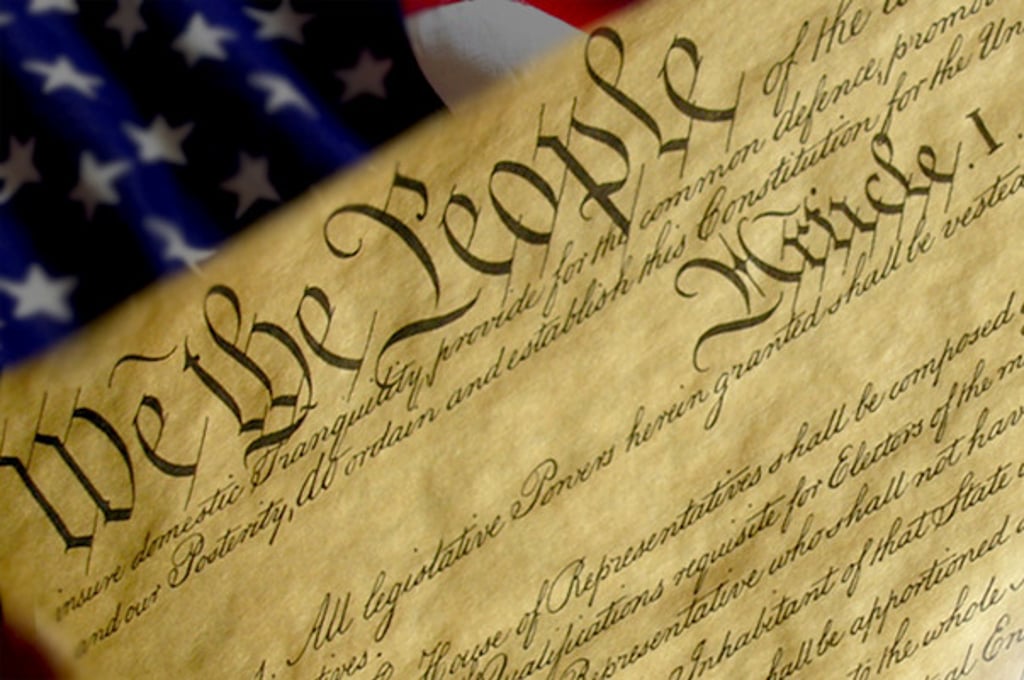 We the People of the
insure domestic Tranquility, provide for the common defence, promo
and our Posterity, do ordain and establish this Constitution for the Un
Article. I.
1. All legislative Powers herein granted shall be vested
House of Representatives shall be composed
tives.
Qualifications requisite for Electors of the m
Representative who shall not hav
Inhabitant of that State
hall be apportioned
to the whole
al En